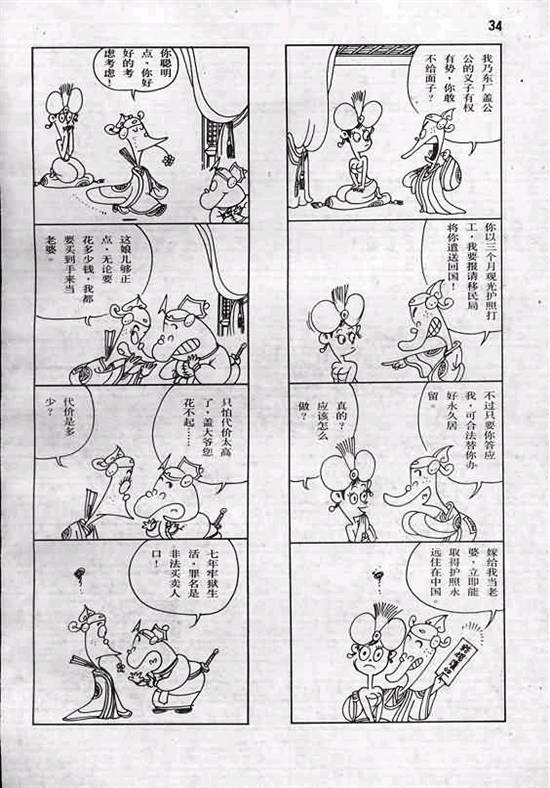 34
我乃东厂盖公
公的义子有权
有势，你敢
不给面子？
你以三个月观光护照打
工，我要报请移民局
将你遣送回国！
不过只要你答应
我，可合法替你办
好永久居
留。
真的？
应该怎么
做？
嫁给我当老
婆，立即能
取得护照永
远住在中国。
你聪明
点，你好
好的考
虑考虑！
这娘儿够正
点，无论要
花多少钱，我都
要买到手来当
老婆。
只怕代价太高
了，盖大爷您
花不起……
代价是多
少？
七年牢狱生
活，罪名是
非法买卖人
口！